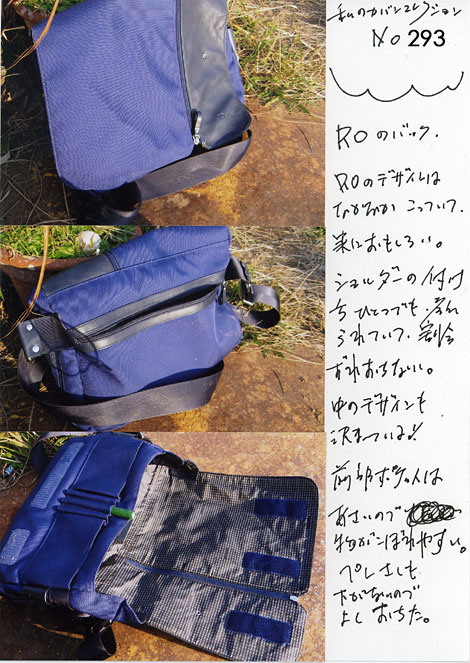 私のカバンコレクション
No 293
ROのバック.
ROのデザインは
なかなか こっていて、
実におもしろい。
ショルダーの付け
ちひとつでも 考え
られていて、割合
ずれおちない。
中のデザインも
決まっている!!
前部ポケットは
あさいので
物がこぼれやすい。
ペンさしも
下がないので
よし おちた。